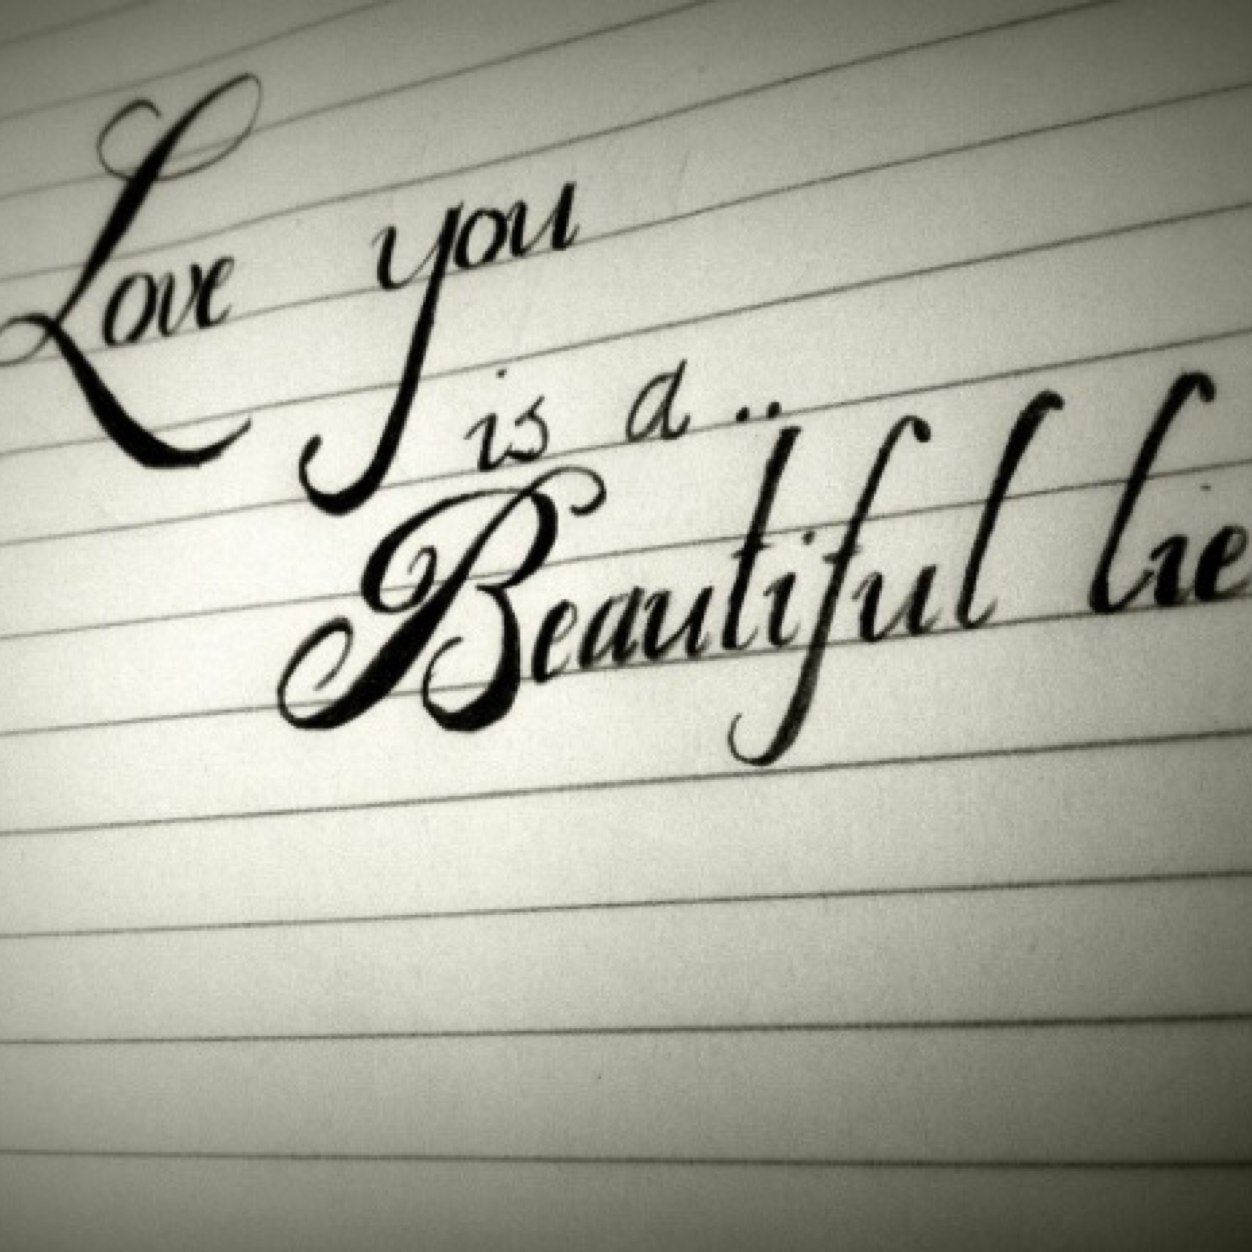 Love you
is a..
Beautiful lie